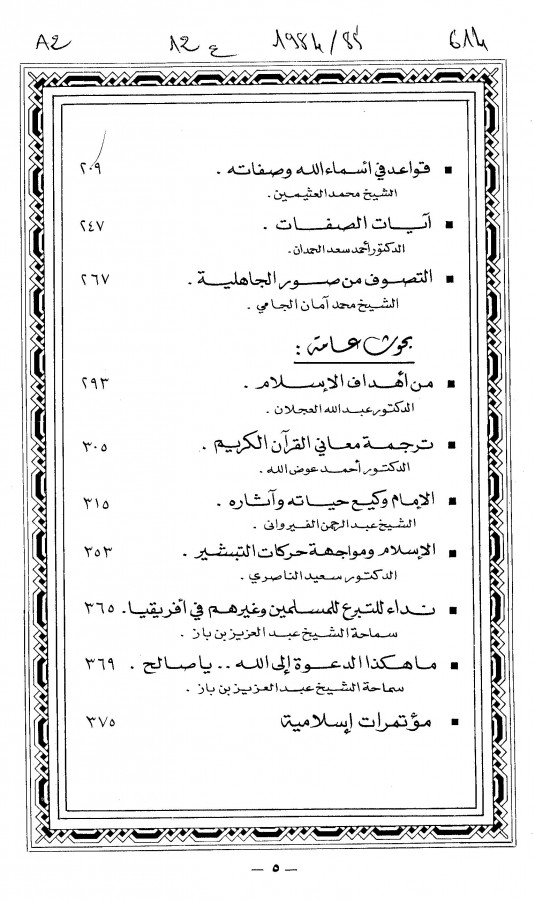 A2 12 ع 1984/85 614
■ قواعد في أسماء الله وصفاته . ٢٠٩
الشيخ محمد العثيمين.
■ آيات الصفات . ٢٤٧
الدكتور أحمد سعد الحمدان.
■ التصوف من صور الجاهلية . ٢٦٧
الشيخ محمد آمان الجامي .
بحوث عامة :
■ من أهداف الإسلام . ٢٩٣
الدكتور عبد الله العجلان .
■ ترجمة معاني القرآن الكريم . ٣٠٥
الدكتور أحمد عوض الله .
■ الإمام وكيع حياته وآثاره . ٣١٥
الشيخ عبد الرحمن الفيروانى .
■ الإسلام ومواجهة حركات التبشير . ٣٥٣
الدكتور سعيد الناصري .
■ نداء للتبرع للمسلمين وغيرهم في أفريقيا . ٣٦٥
سماحة الشيخ عبد العزيز بن باز .
■ ما هكذا الدعوة إلى الله .. يا صالح . ٣٦٩
سماحة الشيخ عبد العزيز بن باز .
■ مؤتمرات إسلامية ٣٧٥
— ٥ —